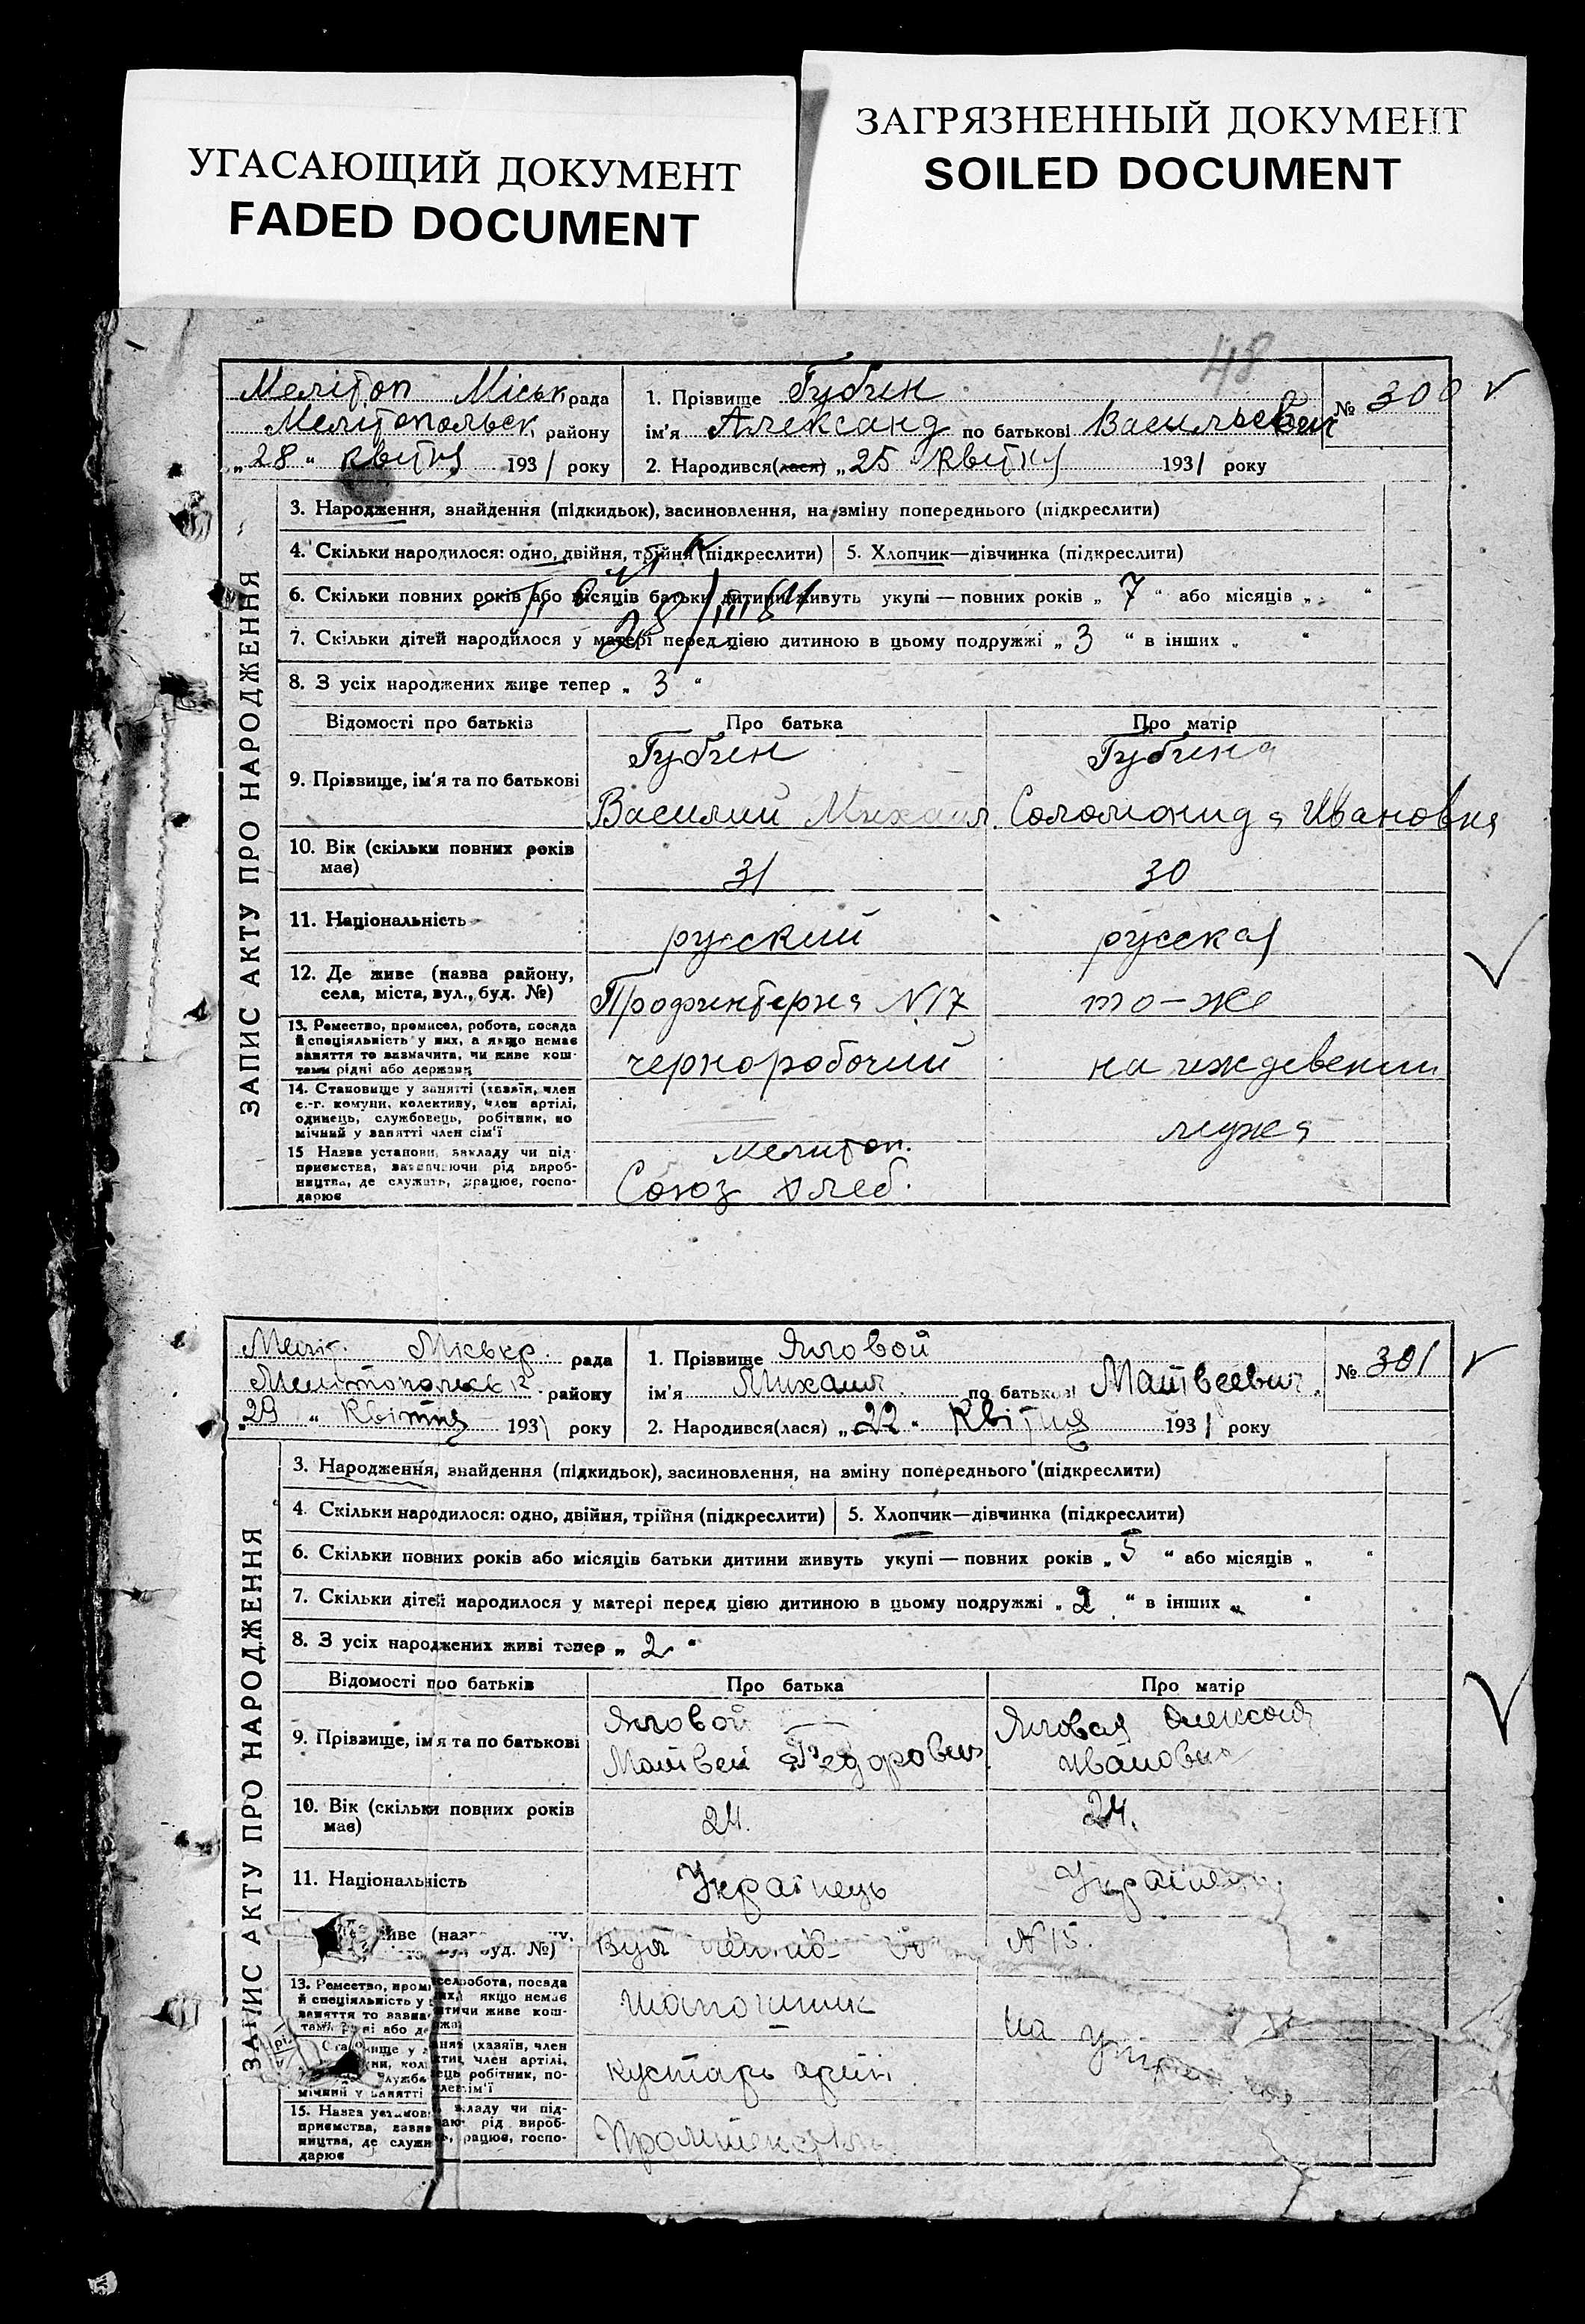 УГАСАЮЩИЙ ДОКУМЕНТ
FADED DOCUMENT
ЗАГРЯЗНЕННЫЙ ДОКУМЕНТ
SOILED DOCUMENT
48
ЗАПИС АКТУ ПРО НАРОДЖЕННЯ
Меліtоп Міськ рада
Мелітопольськ. району
„28“ квітня 1931 року
1. Прізвище Губин
ім'я Александ по батькові Васильевич
№ 300
2. Народився(лася) „25“ квітня 1931 року
3. Народження, знайдення (підкидьок), засиновлення, на зміну попереднього (підкреслити)
4. Скільки народилося: одно, двійня, трійня (підкреслити) 5. Хлопчик—дівчинка (підкреслити)
6. Скільки повних років або місяців батьки дитини живуть укупі — повних років „ 7 “ або місяців „ “
7. Скільки дітей народилося у матері перед цією дитиною в цьому подружжі „ 3 “ в інших „ “
8. З усіх народжених живе тепер „ 3 “
Відомості про батьків Про батька Про матір
9. Прізвище, ім'я та по батькові Губин Василий Михаил. Губина Соломонида Ивановна
10. Вік (скільки повних років має) 31 30
11. Національність русский русская
12. Де живе (назва району, села, міста, вул., буд. №) Профинтерна N 17 то-же
13. Ремество, промисел, робота, посада й спеціяльність у них, а якщо немає заняття то визначити, чи живе коштами рідні або держави чернорабочий на иждевении
14. Становище у занятті (хазяїн, член с.-г. комуни, колективу, член артілі, одинець, службовець, робітник, помічний у занятті член сім'ї мужа
15 Назва установи, закладу чи підприємства, зазначаючи рід виробництва, де служить, працює, господарює мелитоп. Союз хлеб.
ЗАПИС АКТУ ПРО НАРОДЖЕННЯ
Меліт. Міськр. рада
Мелітопольськ району
„29“ Квітня 1931 року
1. Прізвище Яловой
ім'я Михаил по батькові Матвеевич.
№ 301
2. Народився(лася) „22“ Квітня 1931 року
3. Народження, знайдення (підкидьок), засиновлення, на зміну попереднього (підкреслити)
4. Скільки народилося: одно, двійня, трійня (підкреслити) 5. Хлопчик—дівчинка (підкреслити)
6. Скільки повних років або місяців батьки дитини живуть укупі — повних років „ 5 “ або місяців „ “
7. Скільки дітей народилося у матері перед цією дитиною в цьому подружжі „ 2 “ в інших „ “
8. З усіх народжених живі тепер „ 2 “
Відомості про батьків Про батька Про матір
9. Прізвище, ім'я та по батькові Яловой Матвей Федорович Яловая Ивановна
10. Вік (скільки повних років має) 24. 24.
11. Національність Українець
живе буд. №) Вул N 15.
13. Ремество, робота, посада й спеціяльність у якщо немає заняття то чи живе коштами або
кустарь
15. Назва закладу чи підприємства, рід виробництва, де працює, господарює